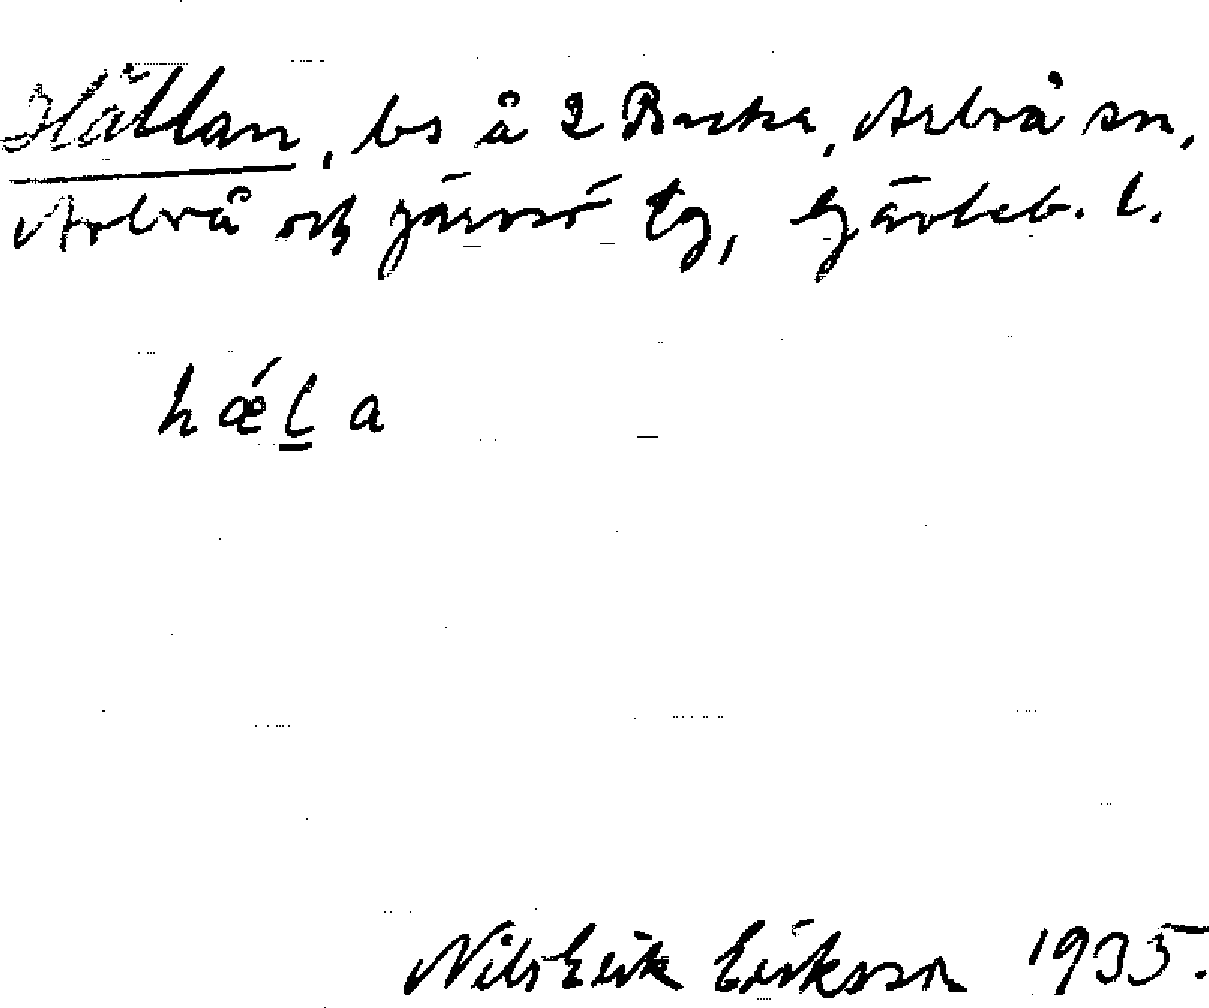 Hällan, bs å 2 Backa, Arbrå sn,
Arbrå och Järvsö tg, Gävleb. l.
hǽl̲a
Nils Erik Eriksson 1935.